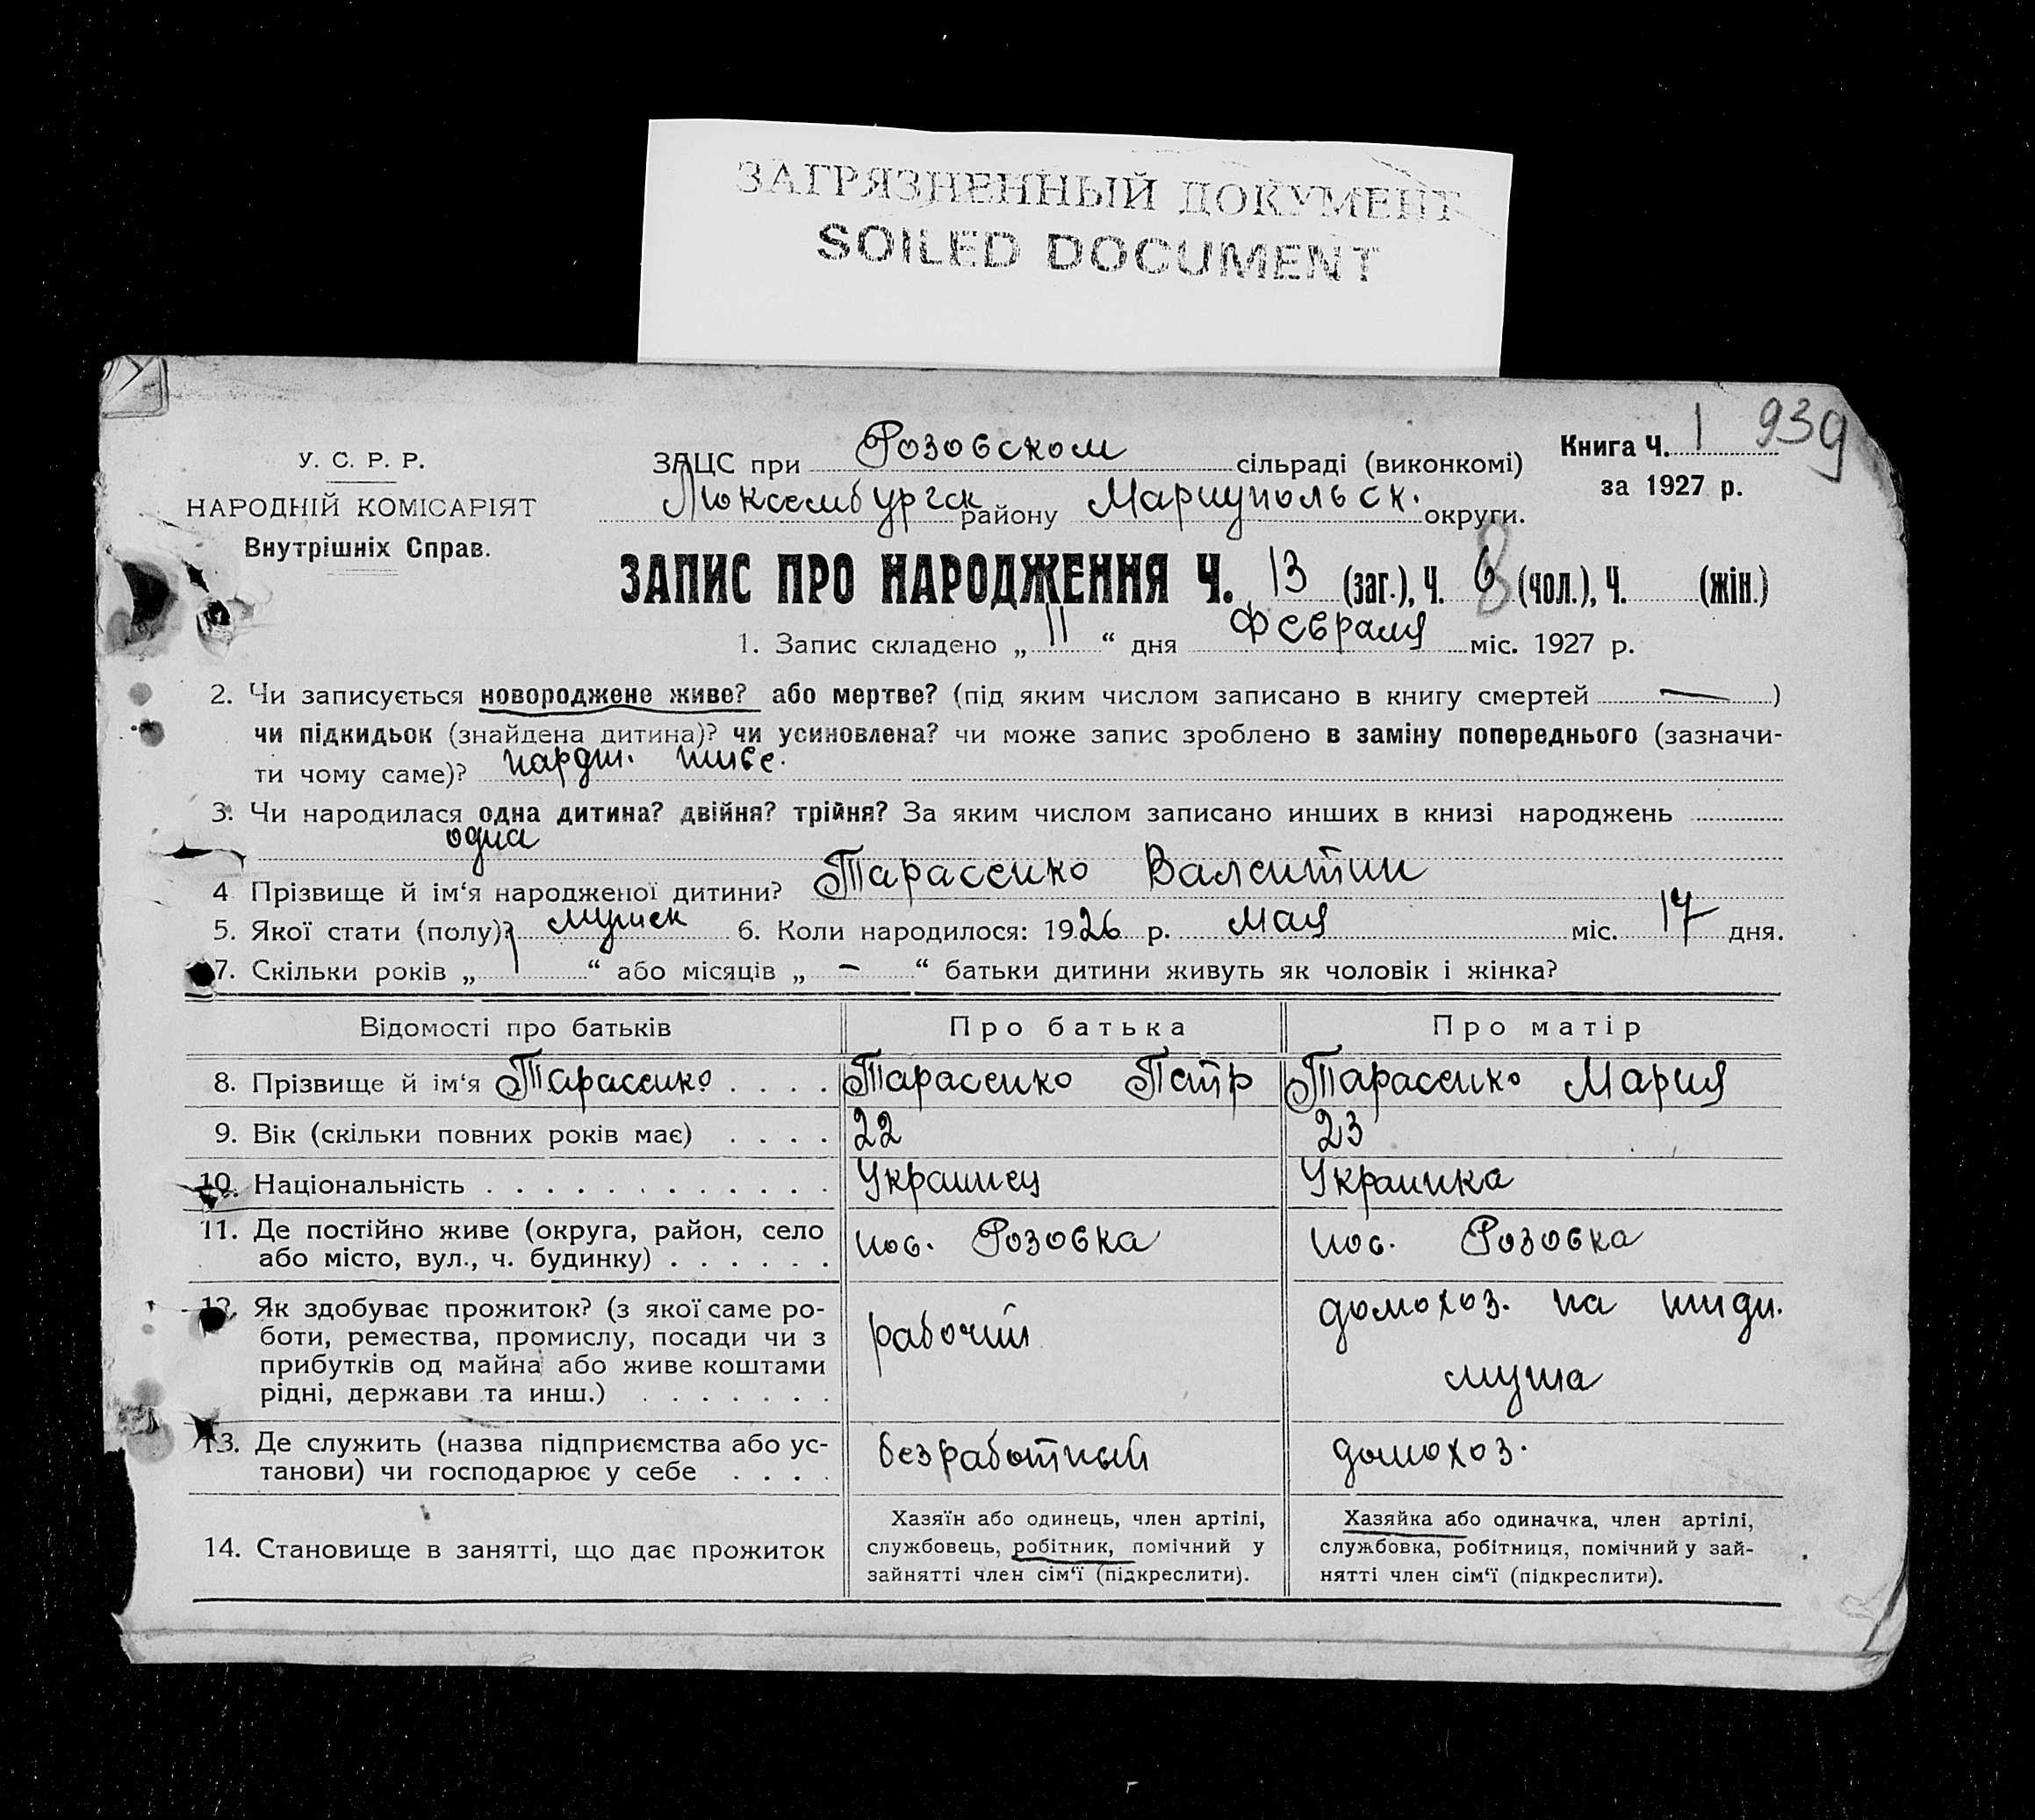 ЗАГРЯЗНЕННЫЙ ДОКУМЕНТ
SOILED DOCUMENT
У. С. Р. Р.
НАРОДНІЙ КОМІСАРІЯТ
Внутрішніх Справ.
ЗАЦС при Розовском сільраді (виконкомі)
Люксембургск району Мариупольск. округи.
Книга Ч. 1 939
за 1927 р.
ЗАПИС ПРО НАРОДЖЕННЯ Ч. 13 (заг.), Ч. 8 (чол.), Ч. (жін.)
1. Запис складено „11“ дня Февраля міс. 1927 р.
2. Чи записується новороджене живе? або мертве? (під яким числом записано в книгу смертей —)
чи підкидьок (знайдена дитина)? чи усиновлена? чи може запис зроблено в заміну попереднього (зазначи-
ти чому саме)?
3. Чи народилася одна дитина? двійня? трійня? За яким числом записано инших в книзі народжень
одна
4 Прізвище й ім‘я народженої дитини? Тарасенко Валентин
5. Якої стати (полу)? мужск 6. Коли народилося: 1926 р. мая міс. 17 дня.
7. Скільки років „1“ або місяців „-“ батьки дитини живуть як чоловік і жінка?
Відомості про батьків Про батька Про матір
8. Прізвище й ім‘я Тарасенко .... Тарасенко Петр Тарасенко Мария
9. Вік (скільки повних років має) .... 22 23
10. Національність ............. Украинец Украинка
11. Де постійно живе (округа, район, село
або місто, вул., ч. будинку) ...... пос. Розовка пос. Розовка
12. Як здобуває прожиток? (з якої саме ро-
боти, ремества, промислу, посади чи з
прибутків од майна або живе коштами
рідні, держави та инш.) .......
рабочий
домохоз. на ижди.
мужа
13. Де служить (назва підприємства або ус-
танови) чи господарює у себе ....
безработный
домохоз.
14. Становище в занятті, що дає прожиток
Хазяїн або одинець, член артілі,
службовець, робітник, помічний у
зайнятті член сім‘ї (підкреслити).
Хазяйка або одиначка, член артілі,
службовка, робітниця, помічний у зай-
нятті член сім‘ї (підкреслити).